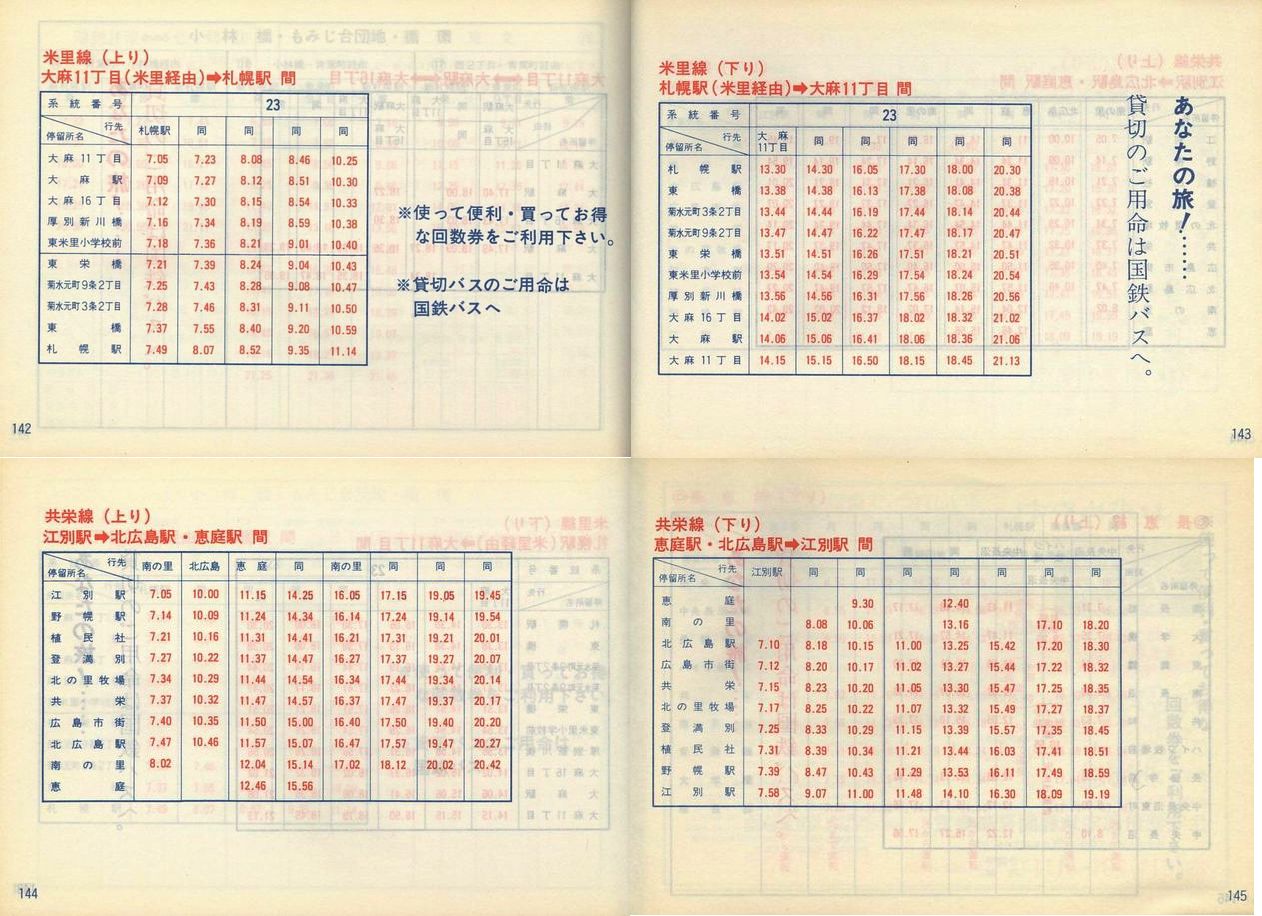 米里線（上り）
大麻11丁目（米里経由）➡札幌駅 間
系統番号 23
停留所名 行先 札幌駅 同 同 同 同
大麻11丁目 7.05 7.23 8.08 8.46 10.25
大麻駅 7.09 7.27 8.12 8.51 10.30
大麻16丁目 7.12 7.30 8.15 8.54 10.33
厚別新川橋 7.16 7.34 8.19 8.59 10.38
東米里小学校前 7.18 7.36 8.21 9.01 10.40
東栄橋 7.21 7.39 8.24 9.04 10.43
菊水元町9条2丁目 7.25 7.43 8.28 9.08 10.47
菊水元町3条2丁目 7.28 7.46 8.31 9.11 10.50
東橋 7.37 7.55 8.40 9.20 10.59
札幌駅 7.49 8.07 8.52 9.35 11.14
※使って便利・買ってお得
な回数券をご利用下さい。
※貸切バスのご用命は
国鉄バスへ
142
米里線（下り）
札幌駅（米里経由）➡大麻11丁目 間
系統番号 23
停留所名 行先 大麻11丁目 同 同 同 同 同
札幌駅 13.30 14.30 16.05 17.30 18.00 20.30
東橋 13.38 14.38 16.13 17.38 18.08 20.38
菊水元町3条2丁目 13.44 14.44 16.19 17.44 18.14 20.44
菊水元町9条2丁目 13.47 14.47 16.22 17.47 18.17 20.47
東栄橋 13.51 14.51 16.26 17.51 18.21 20.51
東米里小学校前 13.54 14.54 16.29 17.54 18.24 20.54
厚別新川橋 13.56 14.56 16.31 17.56 18.26 20.56
大麻16丁目 14.02 15.02 16.37 18.02 18.32 21.02
大麻駅 14.06 15.06 16.41 18.06 18.36 21.06
大麻11丁目 14.15 15.15 16.50 18.15 18.45 21.13
あなたの旅！……
貸切のご用命は国鉄バスへ。
143
共栄線（上り）
江別駅➡北広島駅・恵庭駅 間
停留所名 行先 南の里 北広島 恵庭 同 南の里 同 同 同
江別駅 7.05 10.00 11.15 14.25 16.05 17.15 19.05 19.45
野幌駅 7.14 10.09 11.24 14.34 16.14 17.24 19.14 19.54
植民社 7.21 10.16 11.31 14.41 16.21 17.31 19.21 20.01
登満別 7.27 10.22 11.37 14.47 16.27 17.37 19.27 20.07
北の里牧場 7.34 10.29 11.44 14.54 16.34 17.44 19.34 20.14
共栄 7.37 10.32 11.47 14.57 16.37 17.47 19.37 20.17
広島市街 7.40 10.35 11.50 15.00 16.40 17.50 19.40 20.20
北広島駅 7.47 10.46 11.57 15.07 16.47 17.57 19.47 20.27
南の里 8.02 12.04 15.14 17.02 18.12 20.02 20.42
恵庭 12.46 15.56
144
共栄線（下り）
恵庭駅・北広島駅➡江別駅 間
停留所名 行先 江別駅 同 同 同 同 同 同 同
恵庭 9.30 12.40
南の里 8.08 10.06 13.16 17.10 18.20
北広島駅 7.10 8.18 10.15 11.00 13.25 15.42 17.20 18.30
広島市街 7.12 8.20 10.17 11.02 13.27 15.44 17.22 18.32
共栄 7.15 8.23 10.20 11.05 13.30 15.47 17.25 18.35
北の里牧場 7.17 8.25 10.22 11.07 13.32 15.49 17.27 18.37
登満別 7.25 8.33 10.29 11.15 13.39 15.57 17.35 18.45
植民社 7.31 8.39 10.34 11.21 13.44 16.03 17.41 18.51
野幌駅 7.39 8.47 10.43 11.29 13.53 16.11 17.49 18.59
江別駅 7.58 9.07 11.00 11.48 14.10 16.30 18.09 19.19
145